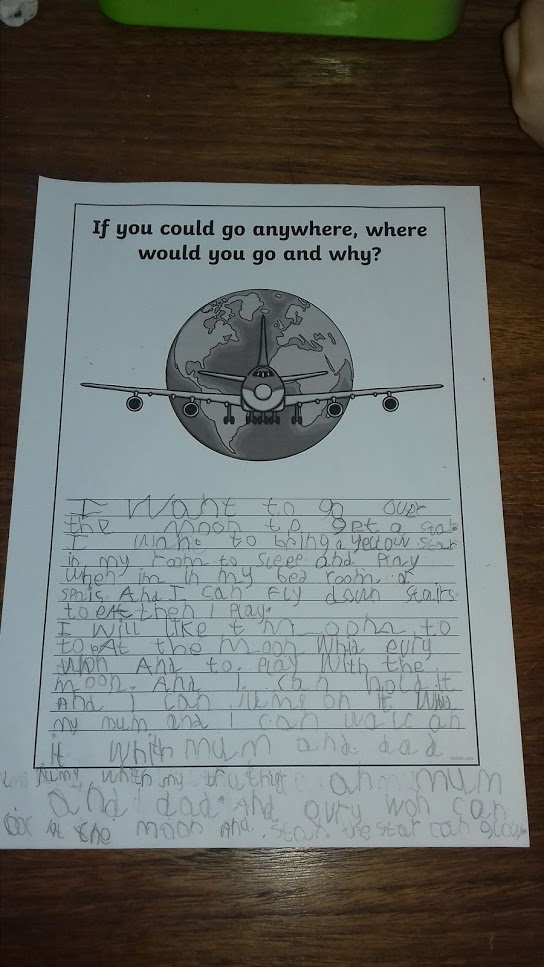 If you could go anywhere, where
would you go and why?
I Want to go over
the moon to get a star
I want to bring a yellow star
in my room to sleee and Play
when im in my bed room or
spais And I can Fly down stairs
to eat then I Play.
I Will like to to
to eat the moon Whid evry
won And to Play With the
moon. And I can hold it
And I can Jump on it Whid
my mum and I can walc on
it whith mum and dad
whith my and mum
and dad And evry won can
the moon And star the star can glow